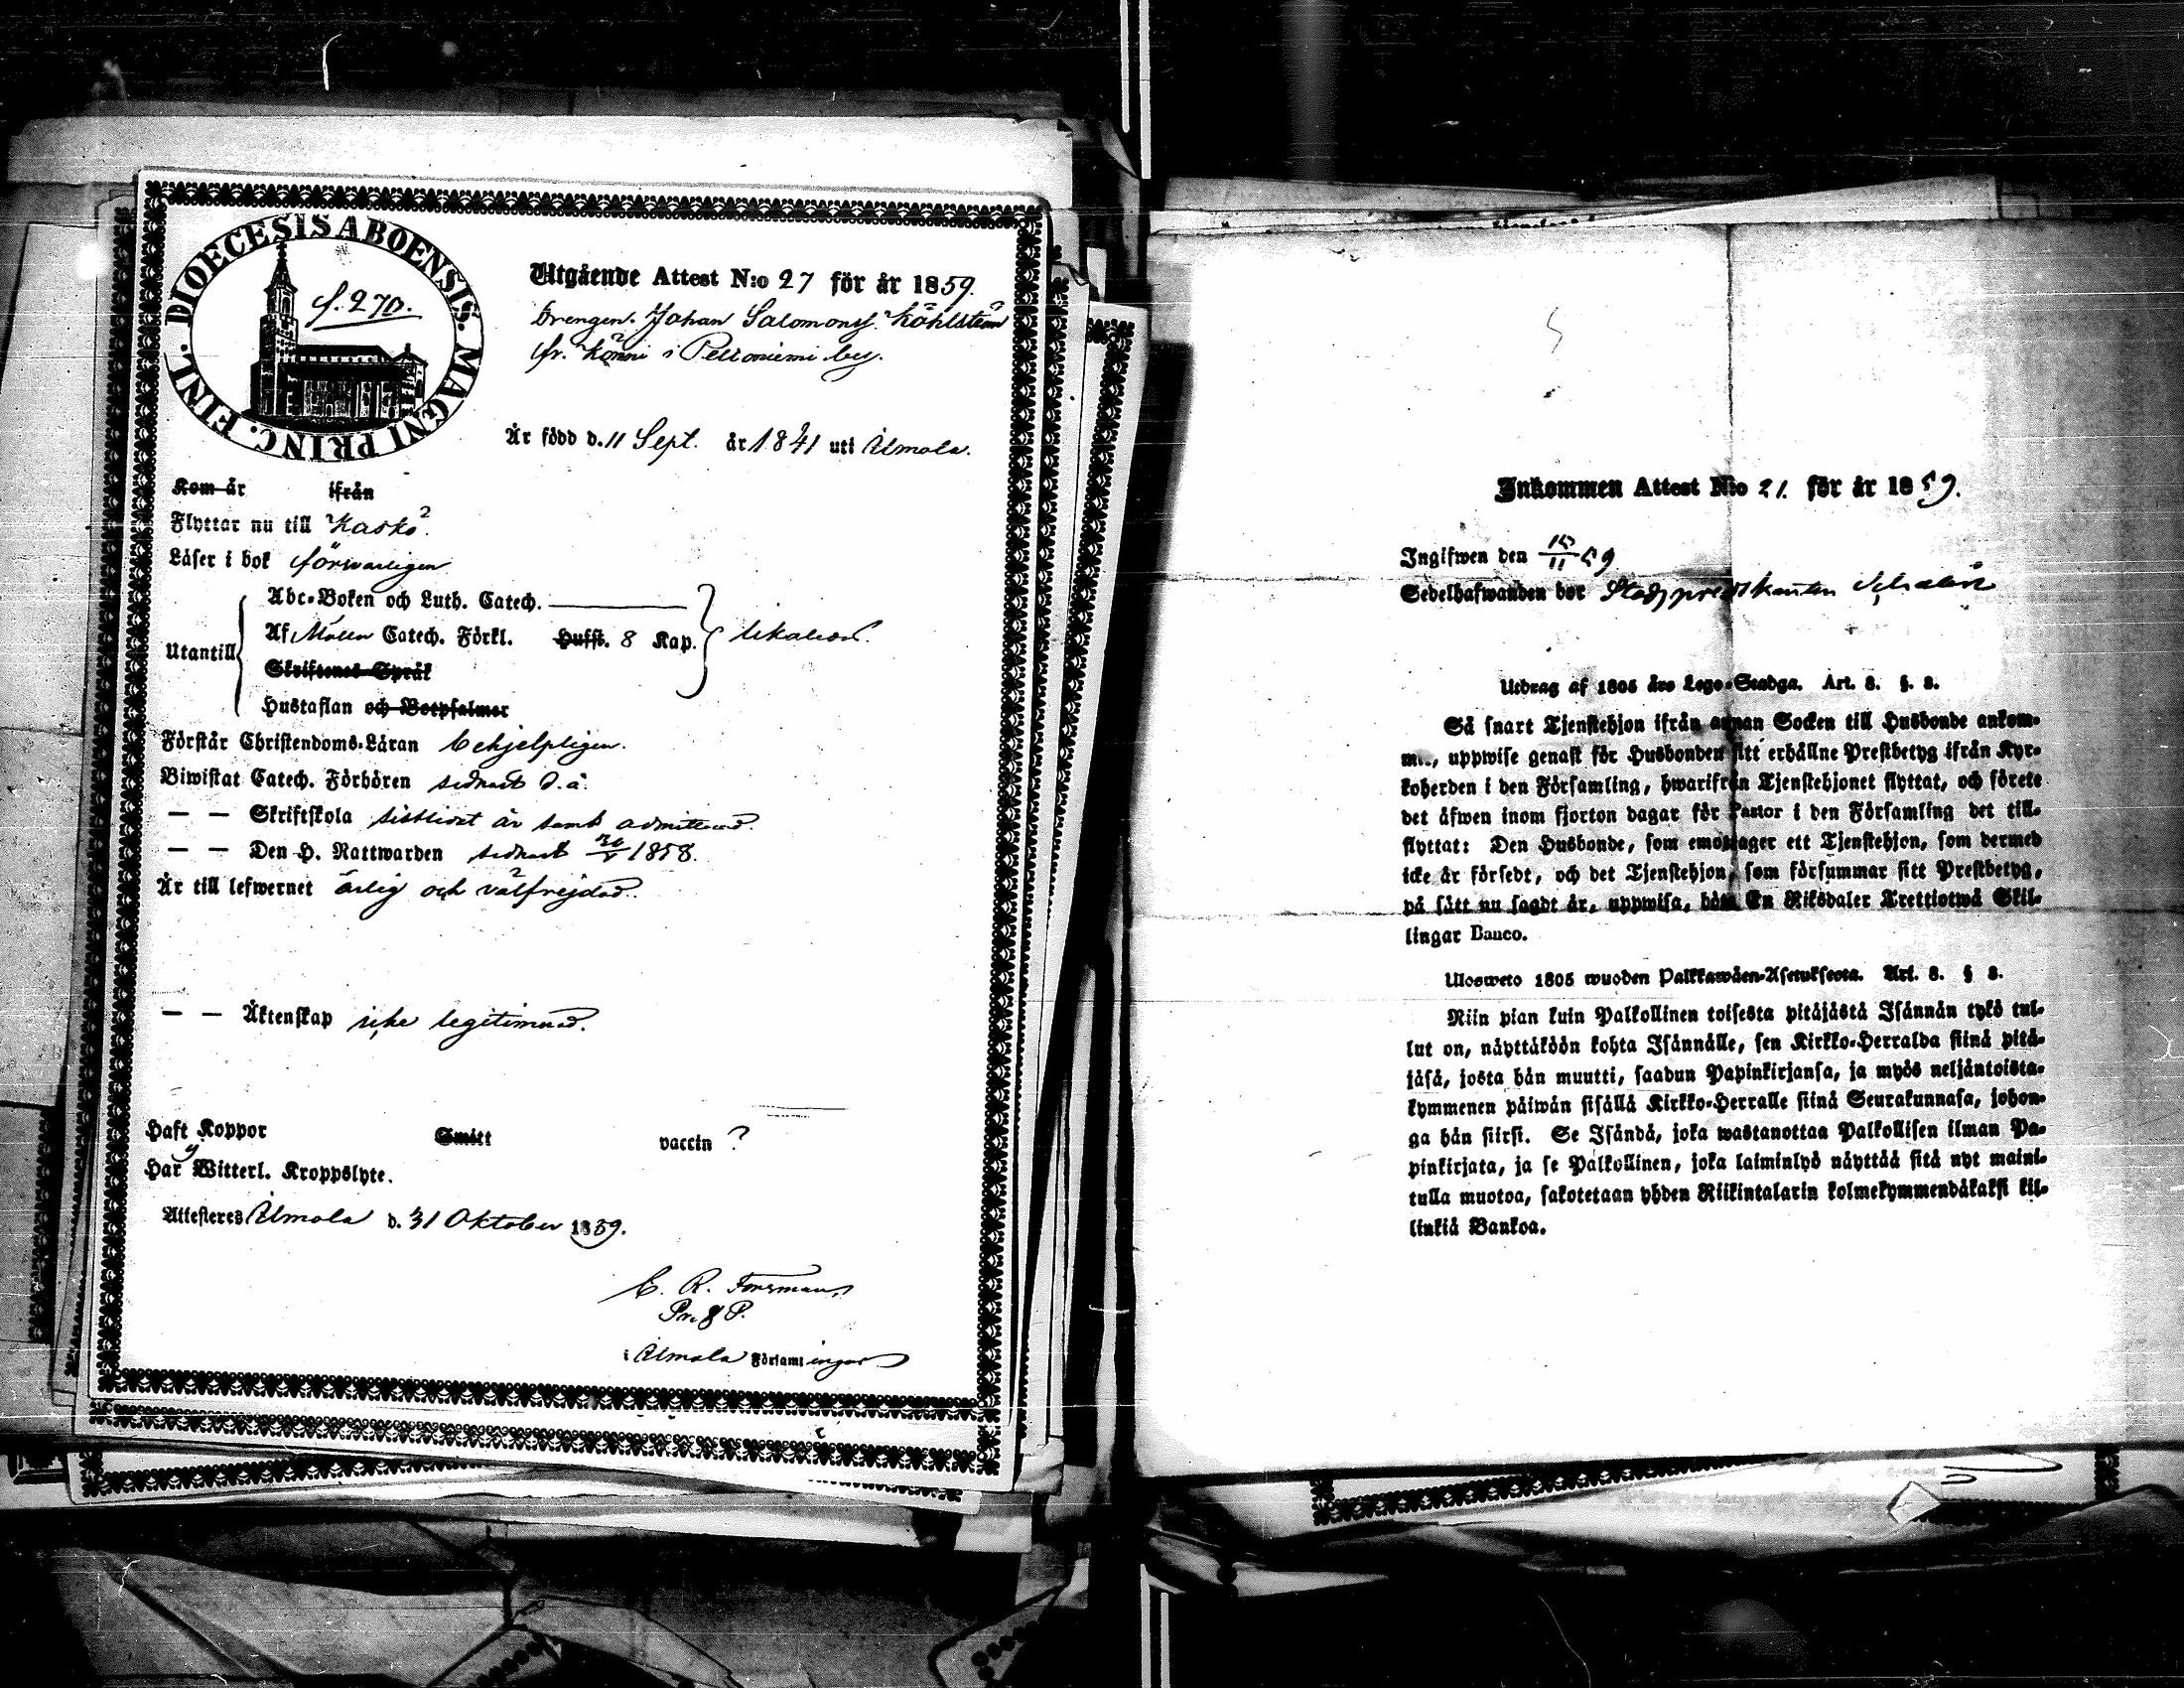 DIOECESIS ABOENSIS. MAGNI PRINC. FINL.
f. 270.
Utgående Attest N:o 27 för år 1859.
Drengen Johan Salomonsf. Kåhlström
fr. Könni i Peltoniemi by.
Är född d. 11 Sept. år 1841 uti Ilmola.
Kom år ifrån
Flyttar nu till Kaskö.
Läser i bok försvarligen
Abc-Boken och Luth. Catech.
Utantill
Af Möller Catech. Förkl. Hufst. 8 Kap.
likaledes.
Skriftenes Språk
Hustaflan och Botpsalmer
Förstår Christendoms-Läran behjelpligen.
Biwistat Catech. Förhören sednast d. å.
— — Skriftskola sistlidet år samt admitterad.
— — Den H. Nattwarden sednast 1858.
Är till lefwernet ärlig och välfrejdad.
— — Äktenskap icke legitimerad.
Haft Koppor Smitt vaccin ?
Har Witterl. Kroppslyte.
Attesteres Ilmola d. 31 Oktober 1859.
C. R. Forsman,
Pr. & P.
i Ilmola Församlingar
Inkommen Attest N:o 21. för år 1859.
Ingifwen den 15/11 59
Sedelhafwanden bor Stadspredikanten
Utdrag af 1805 års Lego-Stadga. Art. 8. §. 8.
Så snart Tjenstehjon ifrån annan Socken till Husbonde ankom-
mit, uppwise genast för Husbonden sitt erhållne Prestbetyg ifrån Kyr-
koherden i den Församling, hwarifrån Tjenstehjonet flyttat, och förete
det äfwen inom fjorton dagar för Pastor i den Församling det till-
flyttat: Den Husbonde, som emottager ett Tjenstehjon, som dermed
icke är försedt, och det Tjenstehjon, som försummar sitt Prestbetyg,
på sätt nu sagdt är, uppwisa, böte En Riksdaler Trettiotwå Skil-
lingar Banco.
Ulosweto 1805 wuoden Palkkawäen-Asetuksesta. Art. 8. § 8.
Niin pian kuin Palkollinen toisesta pitäjästä Isännän tykö tul-
lut on, näyttäköön kohta Isännälle, sen Kirkko-Herralda siinä pitä-
jäsä, josta hän muutti, saadun Papinkirjansa, ja myös neljäntoista-
kymmenen päiwän sisällä Kirkko-Herralle siinä Seurakunnasa, johon-
ga hän siirsi. Se Isändä, joka wastanottaa Palkollisen ilman Pa-
pinkirjata, ja se Palkollinen, joka laiminlyö näyttää sitä nyt maini-
tulla muotoa, sakotetaan yhden Riikintalarin kolmekymmendäkaksi kil-
linkiä Bankoa.